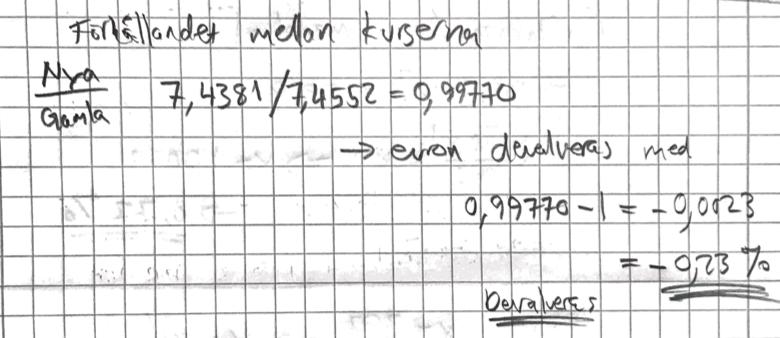 Förhållandet mellan kurserna
Nya
Gamla
7,4381/7,4552 = 0,99770
→ euron devalveras med
0,99770 - 1 = -0,0023
= -0,23 %
Devalveras